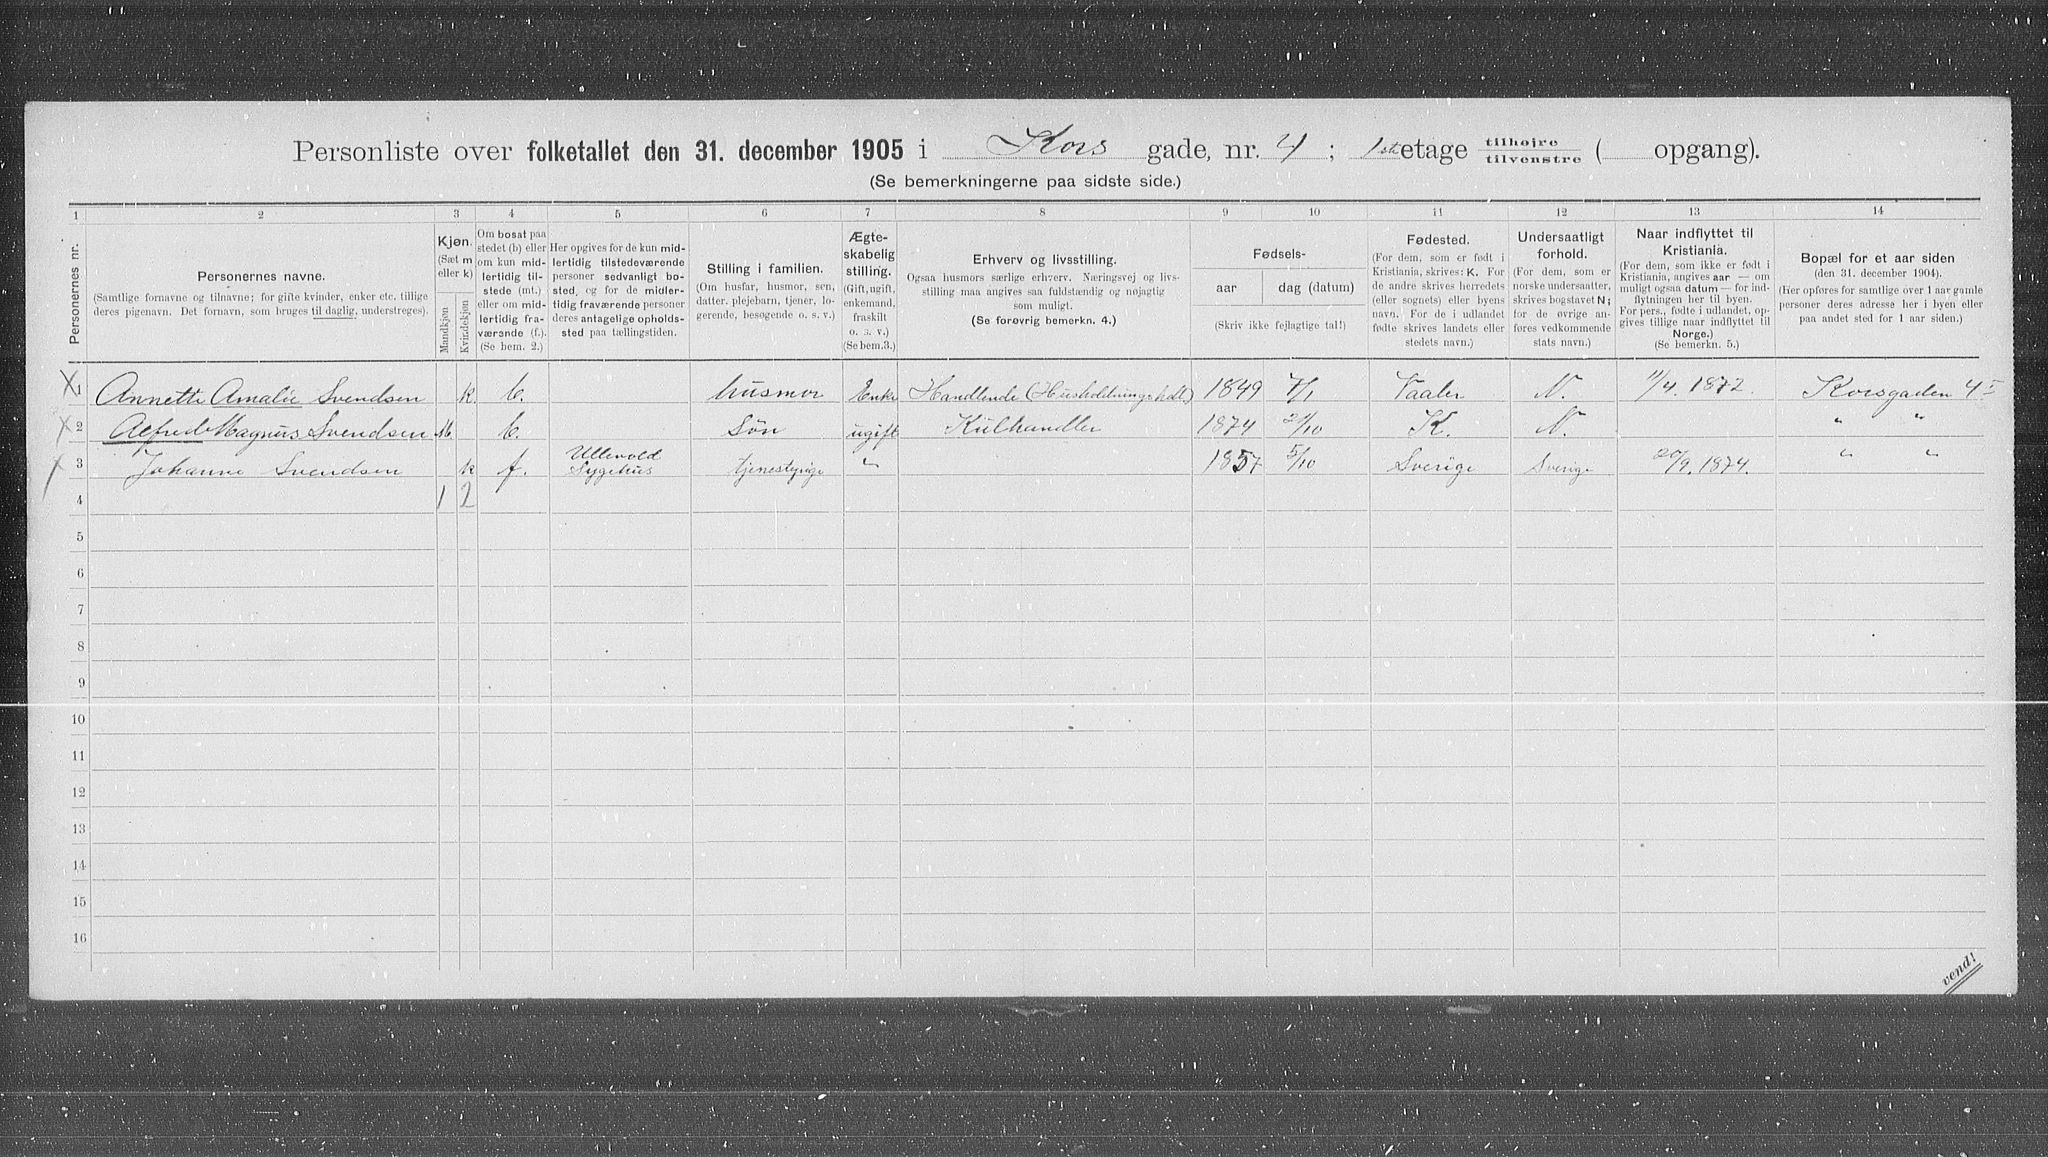 Personliste over folketallet den 31. december 1905 i Kors gade, nr. 4 ; 1ste etage tilhøjre tilvenstre ( opgang).
(Se bemerkningerne paa sidste side.)
1 2 3 4 5 6 7 8 9 10 11 12 13 14
Personernes nr.
Personernes navne.
(Samtlige fornavne og tilnavne; for gifte kvinder, enker etc. tillige
deres pigenavn. Det fornavn, som bruges til daglig, understreges).
Kjøn.
(Sæt m
eller k)
Mandkjøn
Kvindekjøn
Om bosat paa
stedet (b) eller
om kun mid-
lertidig til-
stede (mt.)
eller om mid-
lertidig fra-
værende (f.).
(Se bem. 2.)
Her opgives for de kun mid-
lertidig tilstedeværende
personer sedvanligt bo-
sted, og for de midler-
tidig fraværende personer
deres antagelige opholds-
sted paa tællingstiden.
Stilling i familien.
(Om husfar, husmor, søn,
datter, plejebarn, tjener, lo-
gerende, besøgende o. s. v.)
Ægte-
skabelig
stilling.
(Gift, ugift,
enkemand,
fraskilt
o. s. v.)
(Se bem.3.)
Erhverv og livsstilling.
Ogsaa husmors særlige erhverv. Næringsvej og livs-
stilling maa angives saa fuldstændig og nøjagtig
som muligt.
(Se forøvrig bemerkn. 4.)
Fødsels-
aar
dag (datum)
(Skriv ikke fejlagtige tal!)
Fødested.
(For dem, som er født i
Kristiania, skrives: K. For
de andre skrives herredets
(eller sognets) eller byens
navn. For de i udlandet
fødte skrives landets eller
stedets navn.)
Undersaatligt
forhold.
(For dem, som er
norske undersaatter,
skrives bogstavet N;
for de øvrige an-
føres vedkommende
stats navn.)
Naar indflyttet til
Kristiania.
(For dem, som ikke er født i
Kristiania, angives aar — om
muligt ogsaa datum — for ind-
flytningen her til byen.
For pers., fødte i udlandet, op-
gives tillige naar indflyttet til
Norge.)
(Se bemerkn. 5.)
Bopæl for et aar siden
(den 31. december 1904).
(Her opføres for samtlige over 1 aar gamle
personer deres adresse her i byen eller
paa andet sted for 1 aar siden.)
X 1 Annette Amalie Svendsen k. b. husmor Enke Handlende (Husholdningshdl) 1849 7/1 Vaaler N. 11/4 1872. Korsgaden 4 I
X 2 Alfred Magnus Svendsen M. b. Søn ugift Kulhandler 1874 21/10 K. N. " "
X 3 Johanne Svendsen k f. Ullevold Sygehus tjenestpige " 1857 5/10 Sverige Sverige 20/9. 1874. " "
4 1 2
5
6
7
8
9
10
11
12
13
14
15
16
vend!